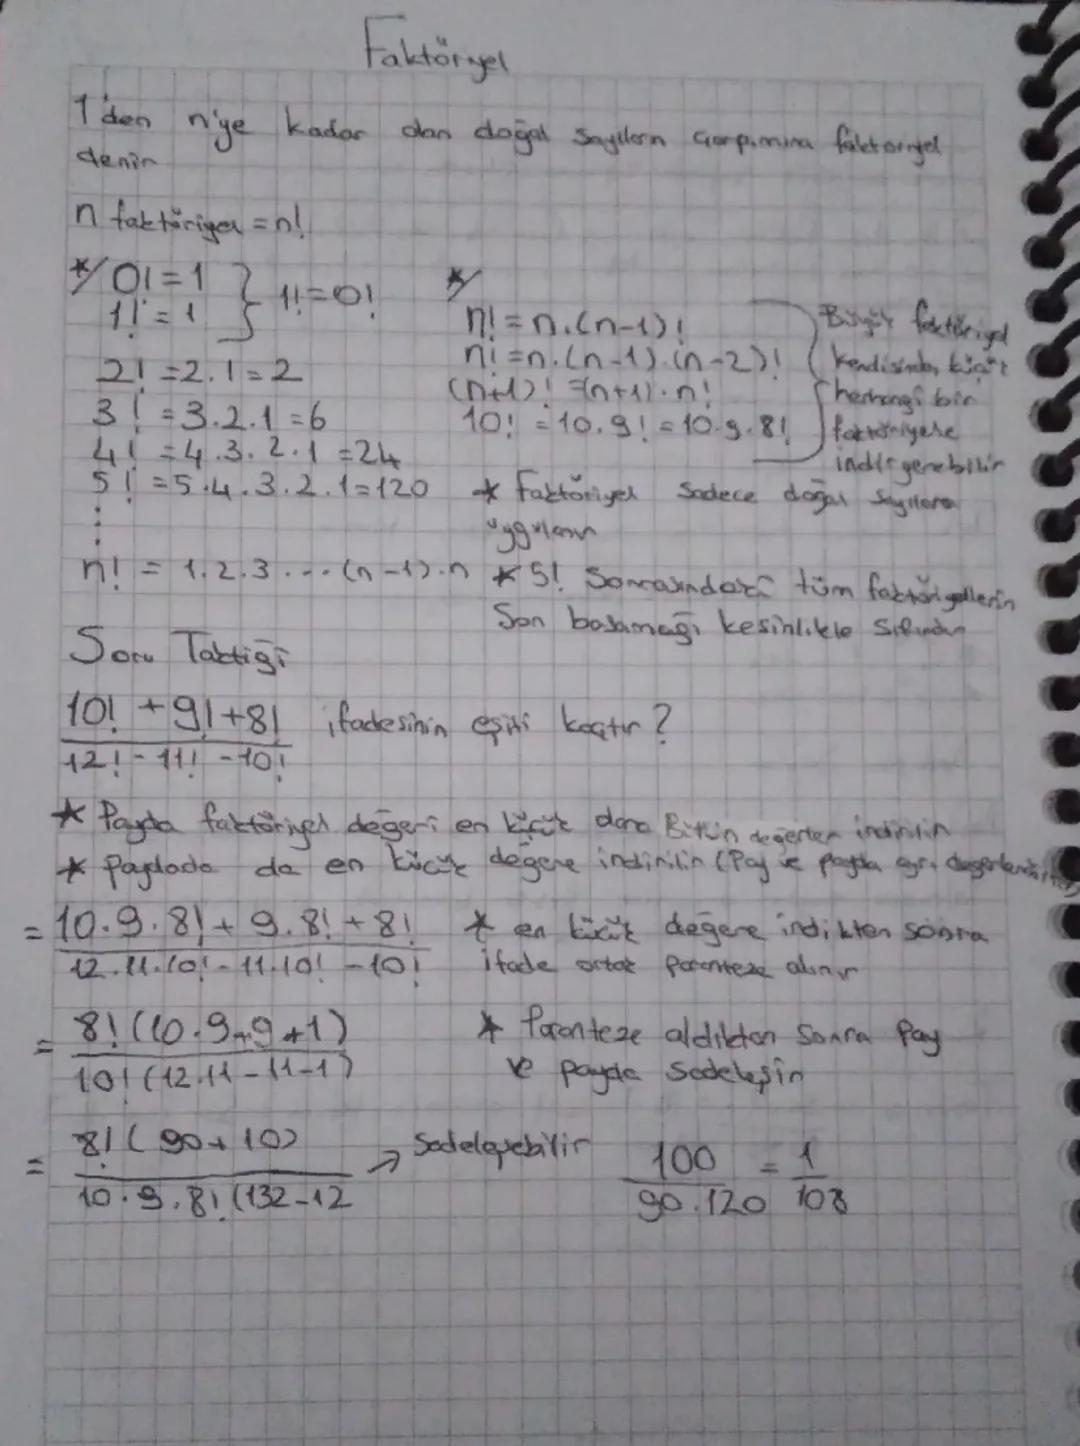 Faktöriyel
1'den n'ye kadar olan doğal sayıların çarpımına faktöriyel
denir
n faktöriyel = n!
*/ 0! = 1
1! = 1 } 1! = 0!
2! = 2.1 = 2
3! = 3.2.1 = 6
4! = 4.3.2.1 = 24
5! = 5.4.3.2.1 = 120
n! = 1.2.3....(n-1).n
*/
n! = n.(n-1)!
n! = n.(n-1).(n-2)!
(n+1)! = (n+1).n!
10! = 10.9! = 10.9.8!
Büyük faktöriyel
kendisinden küçük
herhangi bir
faktöriyele
indirgenebilir
* Faktöriyel sadece doğal sayılara
uygulanır
* 5! Sonrasındaki tüm faktöriyellerin
Son basamağı kesinlikle sıfırdır
Soru Taktiği
10! + 9! + 8! / 12! - 11! - 10! ifadesinin eşiti kaçtır?
* Payda faktöriyel değeri en küçük olana Bütün değerler indirilir
* Paydada da en küçük değere indirilir (Pay ve payda ayrı değerlendirilir)
= 10.9.8! + 9.8! + 8! / 12.11.10! - 11.10! - 10!
* en küçük değere indikten sonra
ifade ortak paranteze alınır
= 8!(10.9+9+1) / 10!(12.11-11-1)
* Paranteze aldıktan sonra Pay
ve payda sadeleşir
= 8!(90+10) / 10.9.8!(132-12 → Sadeleşebilir 100 / 90.120 = 1 / 108